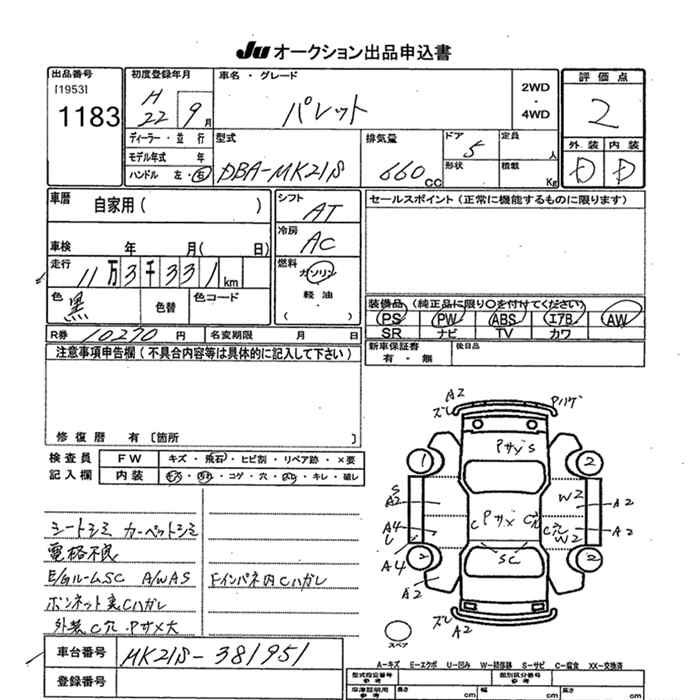 JU オークション出品申込書
出品番号
[1953]
1183
初度登録年月
H
22 9 月
車名・グレード
パレット
2WD
・
4WD
評価点
2
ディーラー・並行
モデル年式 年
ハンドル 左・右
型式
DBA-MK21S
排気量
660 cc
ドア 5
形状
定員 人
積載 Kg
外装 内装
D D
車歴
自家用( )
シフト
AT
車検 年 月( 日)
冷房
AC
走行
11万3千331km
燃料
ガソリン
軽油
( )
色 黒
色替
色コード
R券 10270 円
名変期限 月 日
セールスポイント(正常に機能するものに限ります)
装備品(純正品に限り○を付けてください)
PS PW ABS エアB AW
SR ナビ TV カワ
新車保証書
有・無
後日品
注意事項申告欄(不具合内容等は具体的に記入して下さい)
修復歴 有〔箇所 〕
検査員
記入欄
FW キズ・飛石・ヒビ割・リペア跡・×要
内装 キズ・汚れ・コゲ・穴・キレ・破レ
シートシミ カーペットシミ
電格不良
E/Gルーム SC A/W AS
Fインパネ内Cハガレ
ボンネット裏Cハガレ
外装C穴・Pサメ大
A2
ズレ
Pハゲ
PサメS
1
2
S
A2
W2
A2
C
Pサメ
C穴
C穴
W2
A2
A4
A4
2
2
A2
SC
ズレ
A2
スペア
車台番号 MK21S-381951
登録番号
A-キズ E-エクボ U-凹み W-補修跡 S-サビ C-腐食 XX-交換済
型式指定番号
参考
類別区分番号
参考
長さ cm
幅 cm
高さ cm